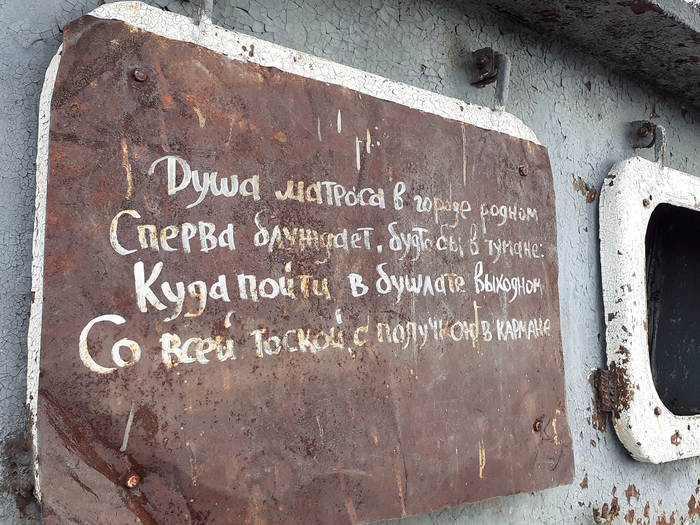 Душа матроса в городе родном
Сперва блуждает, будто бы в тумане:
Куда пойти в бушлате выходном
Со всей тоской, с получкой в кармане